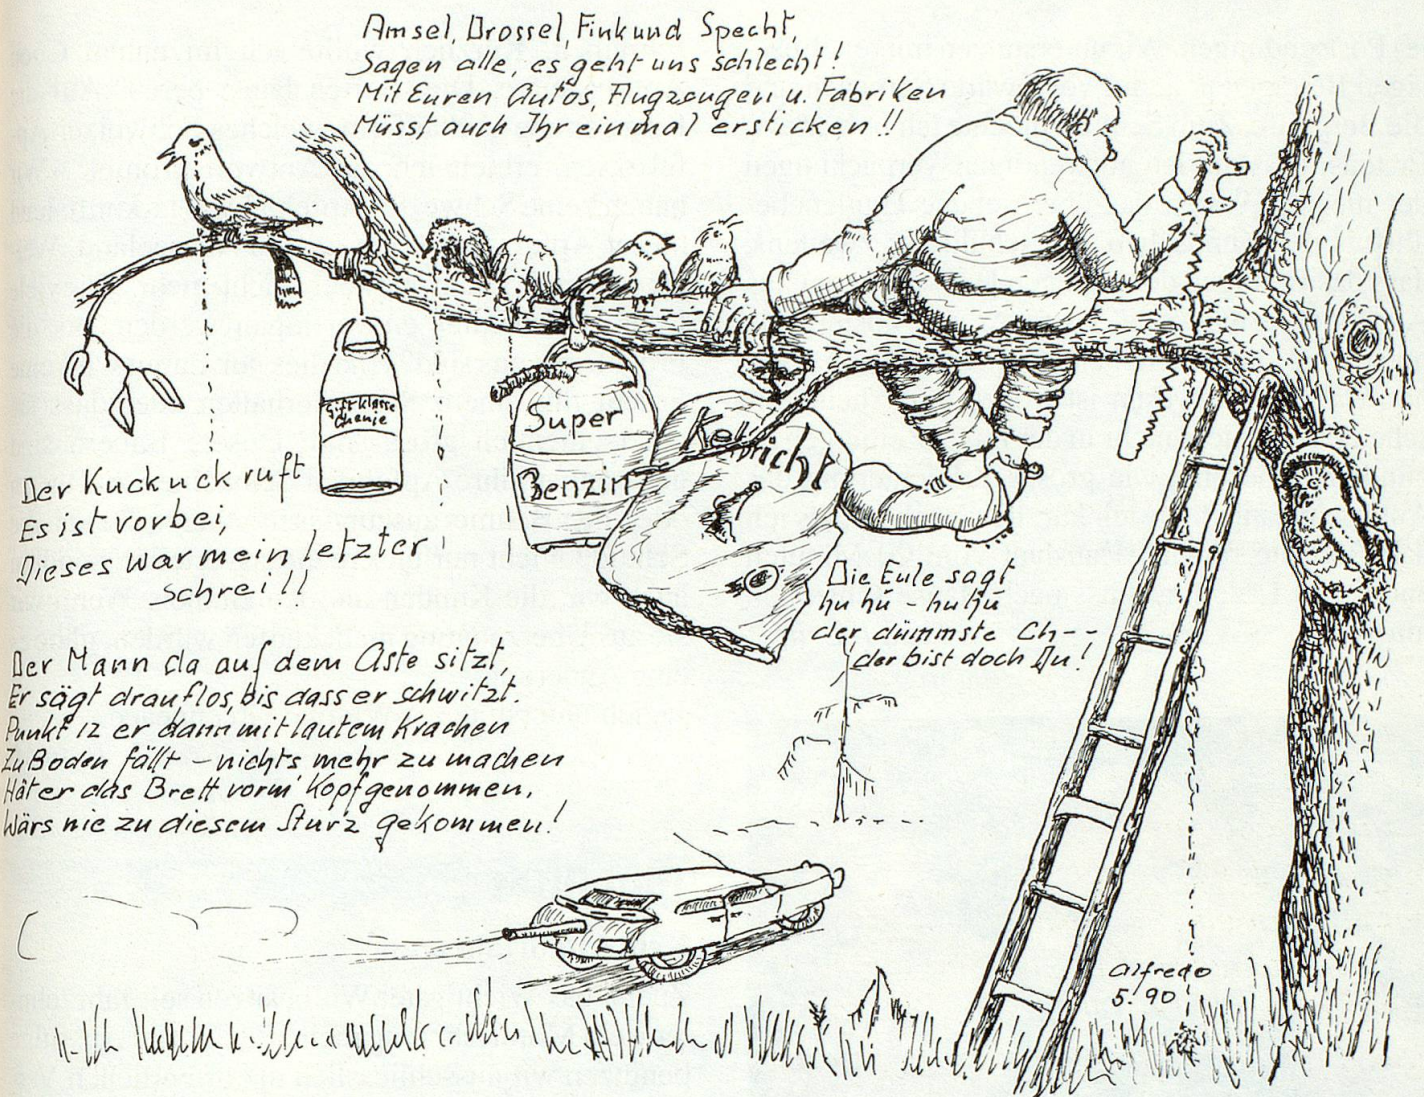 Amsel, Drossel, Fink und Specht,
Sagen alle, es geht uns schlecht!
Mit Euren Autos, Flugzeugen u. Fabriken
Müsst auch Ihr einmal ersticken!!
Giftklasse
Super
Benzin
Kehricht
Der Kuckuck ruft
Es ist vorbei,
Dieses war mein letzter
Schrei!!
Die Eule sagt
hu hu - hu hu
der dümmste Ch--
der bist doch Du!
Der Mann da auf dem Aste sitzt,
Er sägt drauflos, bis dass er schwitzt.
Punkt 12 er dann mit lautem Krachen
Zu Boden fällt - nichts mehr zu machen
Hät er das Brett vorm' Kopf genommen,
Wärs nie zu diesem Sturz gekommen!
Alfredo
5.90